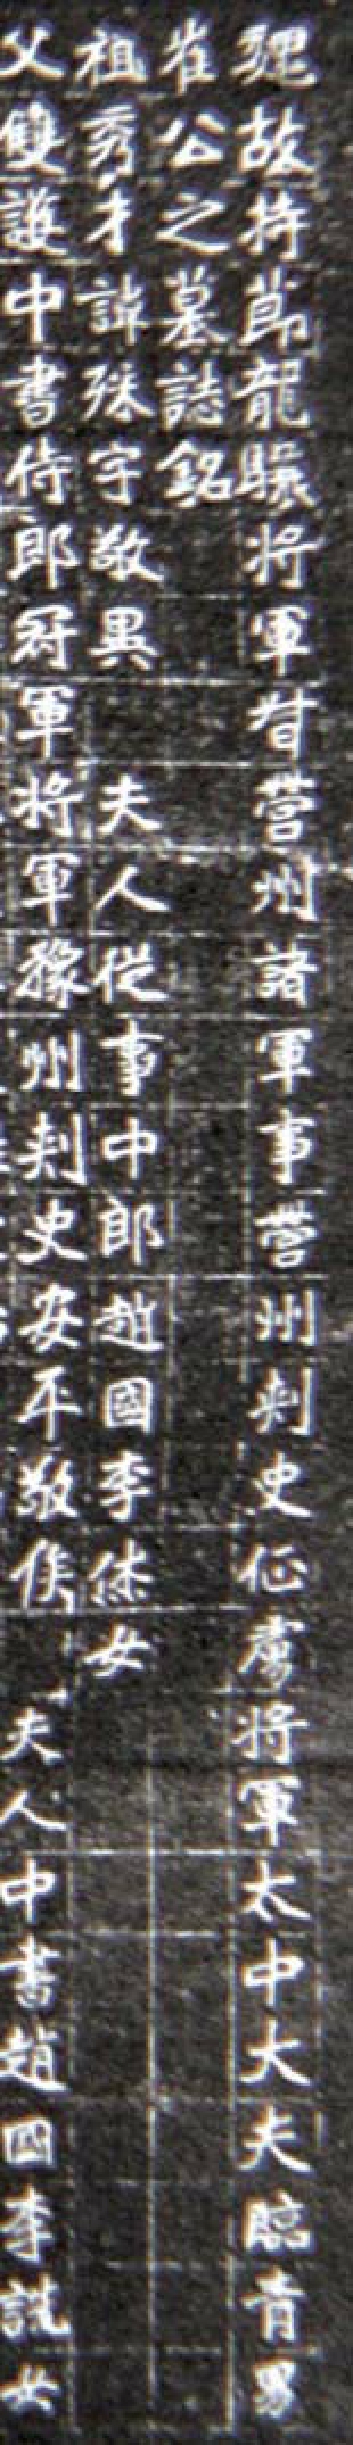 魏故持節龍驤將軍督營州諸軍事營州刺史征虜將軍太中大夫臨青男
崔公之墓誌銘
祖秀才諱殊字敬異　夫人從事中郎趙國李休女
父雙護中書侍郎冠軍將軍豫州刺史安平敬侯　夫人中書趙國李詵女